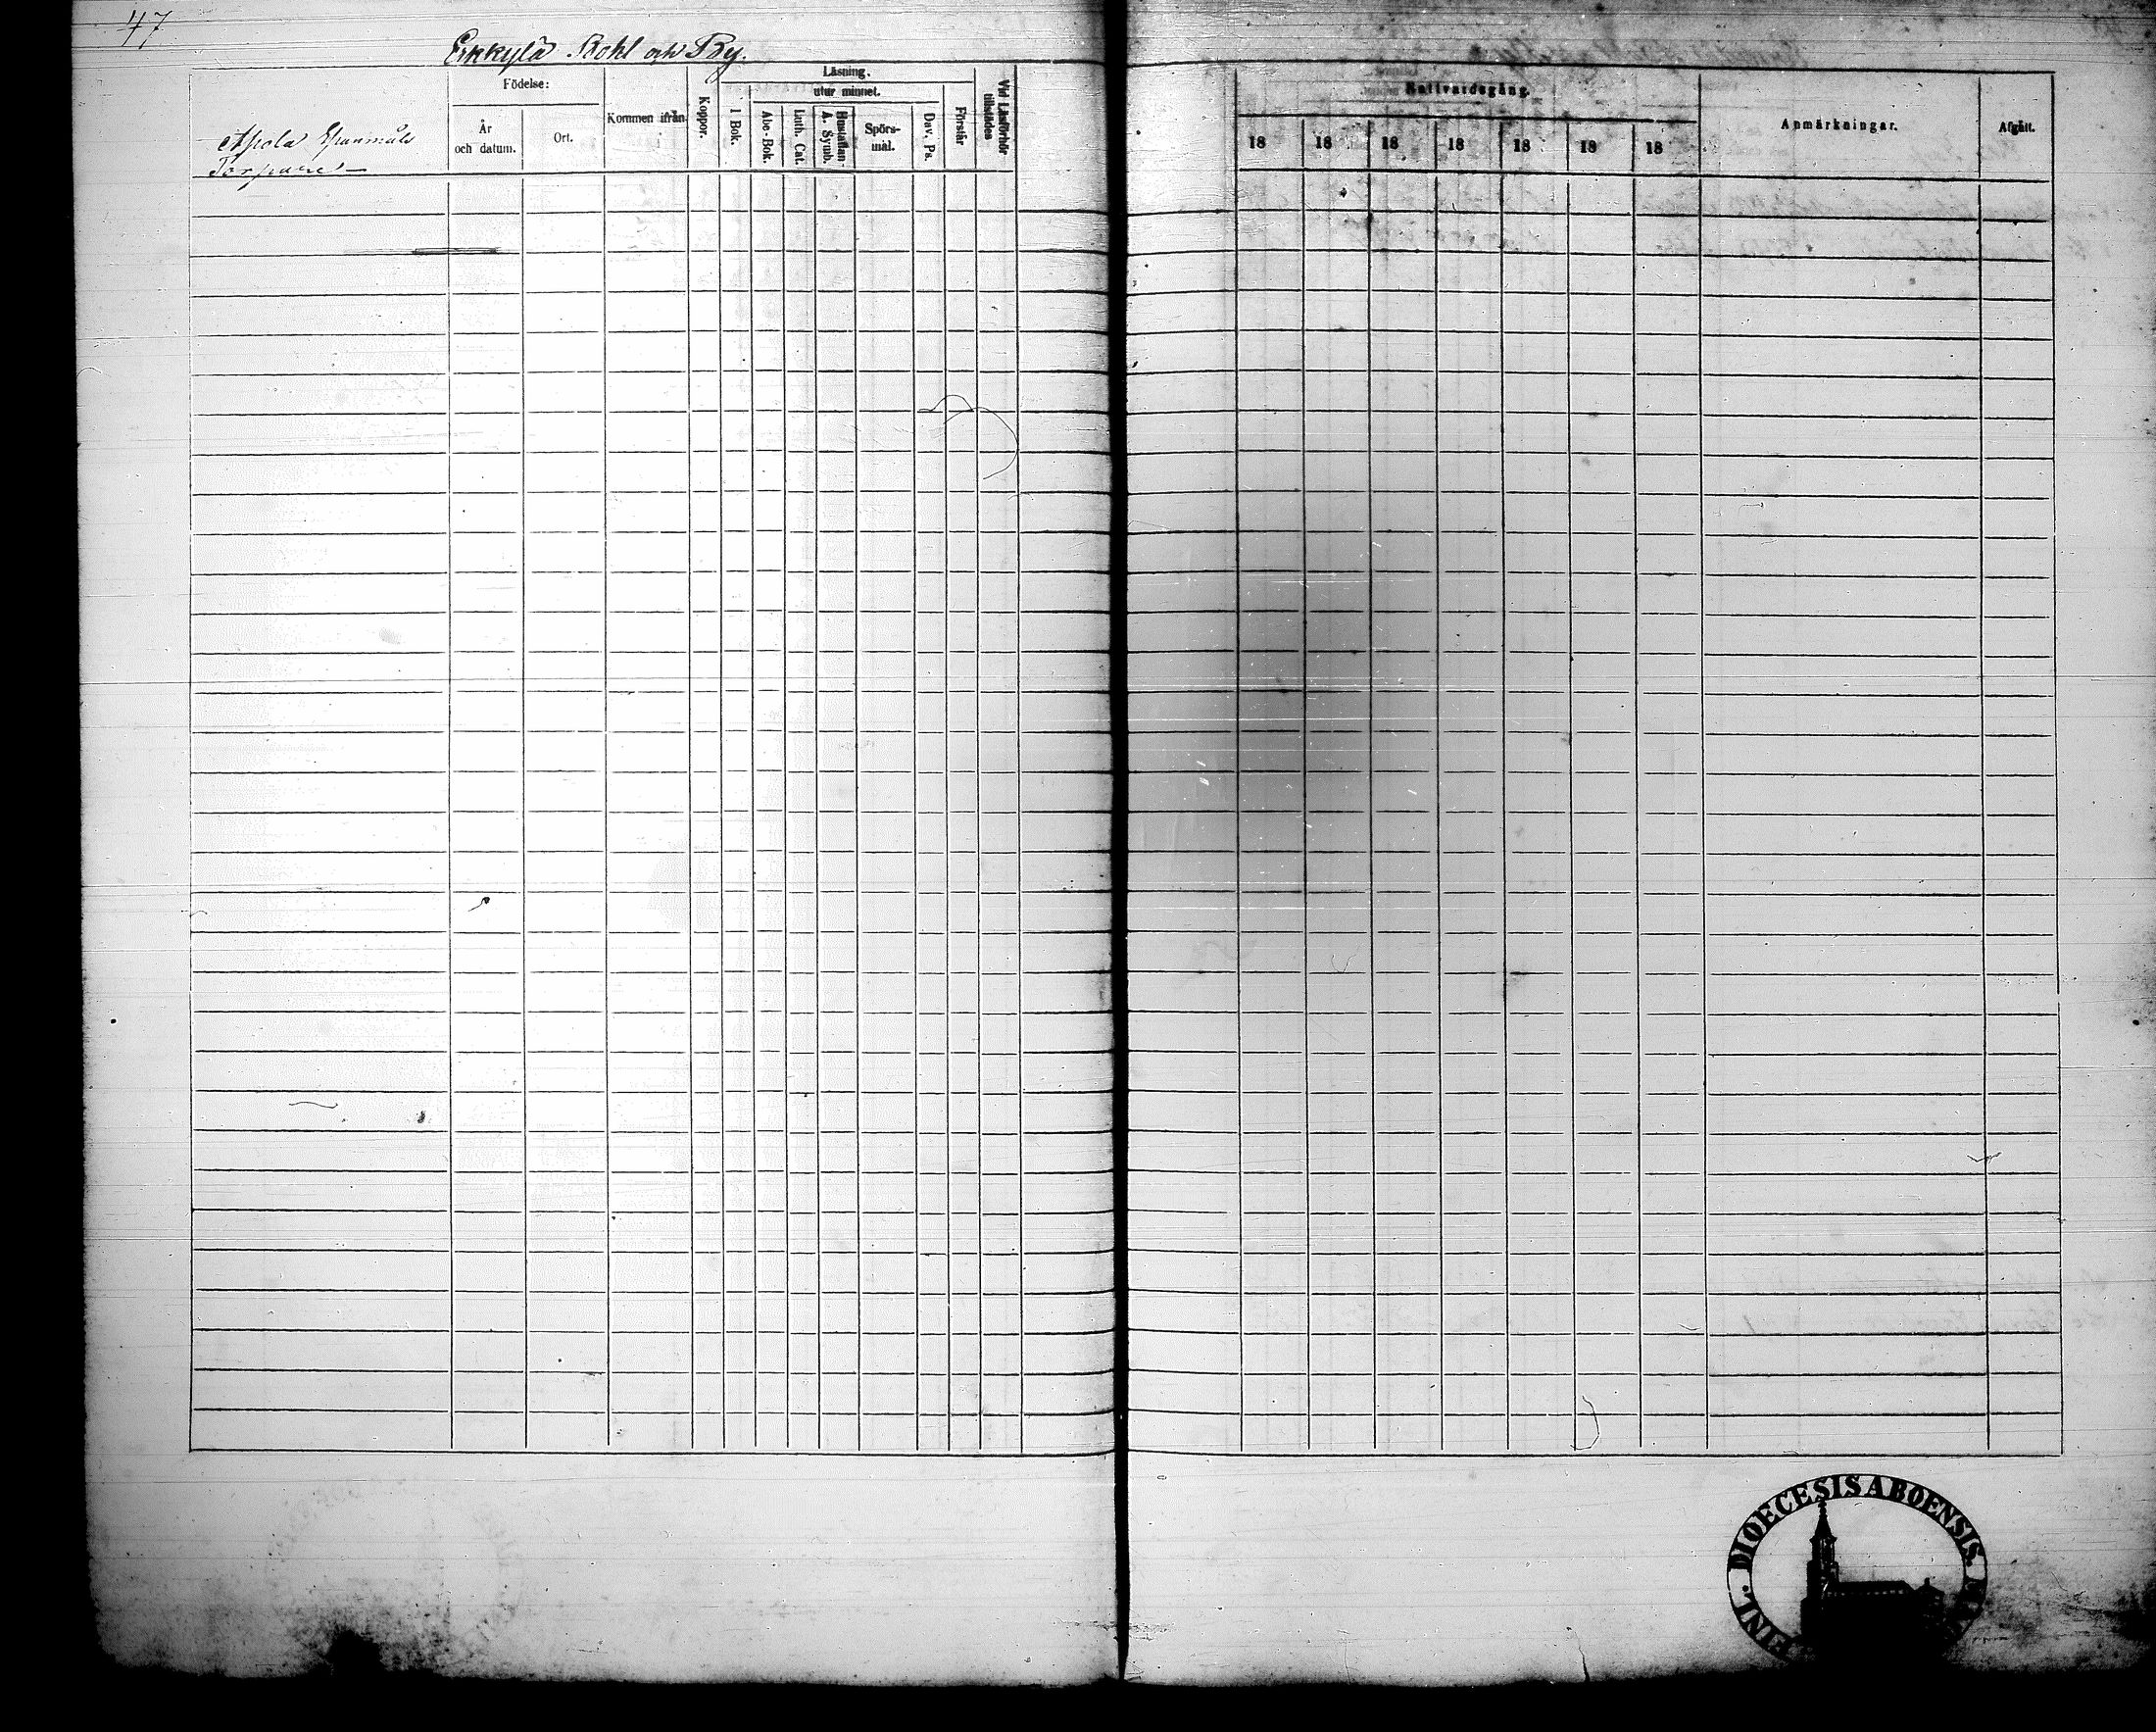 47
Erkkylä Bohl och By.
Apola Spannmåls
Torpare
Födelse:
År
och datum.
Ort.
Kommen ifrån.
Koppor.
Läsning.
I Bok.
utur minnet.
Abc-Bok.
Luth. Cat.
Hustaflan.
A. Symb.
Spörs-
mål.
Dav. Ps.
Förstår
Vid Läsförhör
tillstädes
Nattvardsgång.
18 18 18 18 18 18 18
Anmärkningar.
Afgått.
FINL. DIOECESIS ABOENSIS.